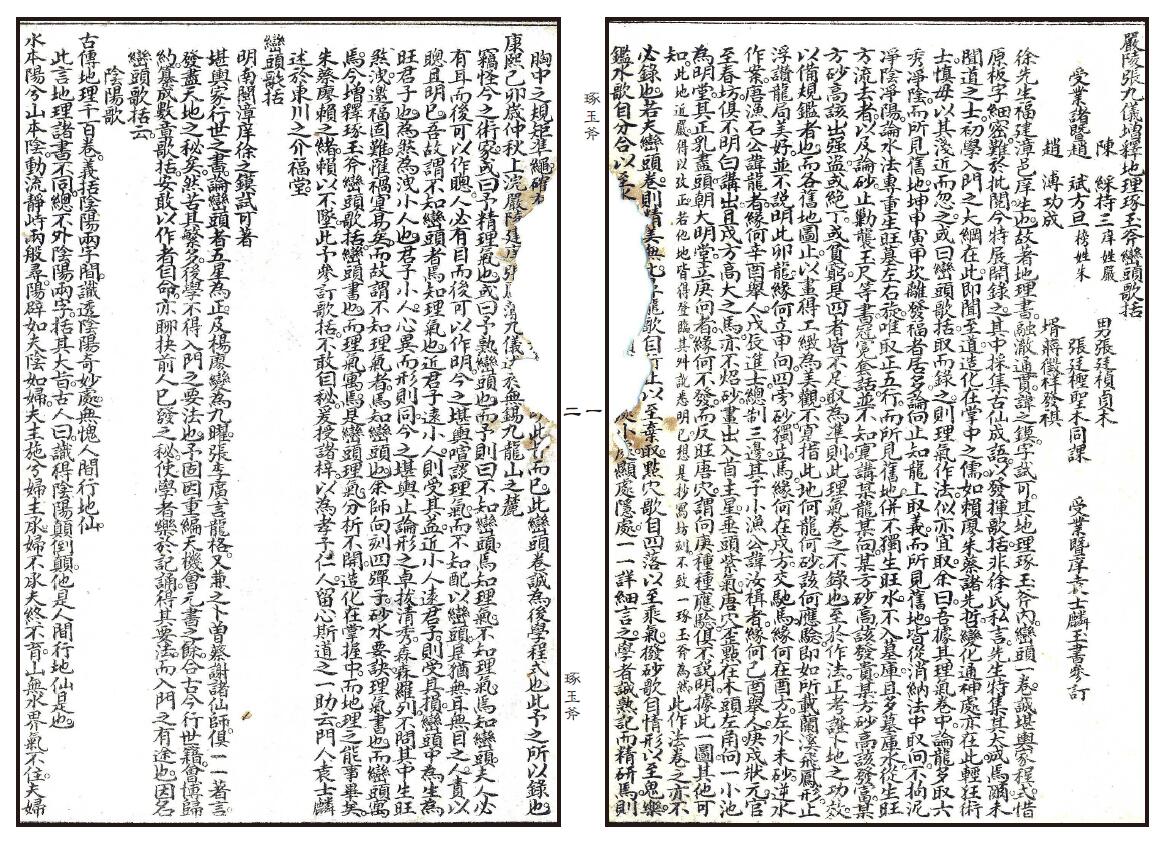 嚴陵張九儀增釋地理琢玉斧巒頭歌括
陳　綵持三庠姓嚴　男張廷楨貞木
受業諸暨趙　斌方旦榜姓朱　張廷極聖木同課　受業暨庠袁士麟玉書參訂
趙　溥功成　壻蔣徵祥發祺
徐先生福建漳邑庠生也故著地理書融澈通貫諱之鏌字試可其地理琢玉斧內巒頭一卷誠堪輿家程式惜
原板字細密難於批閱今特展開錄之其中採集古仙成語以發揮歌括非徐氏私言先生特集其大成焉爾未
聞道之士初學入門之大綱在此即聞至道造化在掌中之儒如賴廖朱蔡諸先哲變化通神處亦在此輕狂術
士慎毋以其淺近而忽之或曰巒頭歌括取而錄之則理氣作法似亦宜取余曰吾據其理氣卷中論龍多取六
秀淨陰而所見舊地坤申寅甲坎離發福者居多論向止知龍上取義而所見舊地皆從消納法中取向不拘泥
淨陰淨陽論水法專重生旺墓左右旋唯取正五行而所見舊地併不獨生旺水不入墓庫且多墓庫水從生旺
方流去者以及論砂止勦襲玉尺等書冠冕套話並不知實講某龍某向某方砂高該發貴某方砂高該發富某
方砂高該出强盜或絕丁或貧窮是四者皆不足取為準則此理氣卷之不錄也至於作法正考證卜地之功效
以俻規鑑者也而各舊地圖止以畫得工緻為美觀不實指此地何龍何砂該何應驗即如所載蘭溪飛鳳形止
浮讚龍局美好並不說明此卯龍緣何立申向四旁砂獨立馬緣何在戌方交馳馬緣何在酉方左水未砂逆水
作案唐漁石公諱龍者緣何辛酉舉人戊辰進士總制三邊其子小漁公諱汝楫者緣何己酉舉人庚戌狀元官
至春坊俱不明白講出且戌方高大之馬亦不烙砂畫出入首主星垂頭紫氣唐穴歪點在木頭左角向一小池
為明堂其正乳盡頭朝大明堂立庚向者緣何不發而反旺唐穴謂向庚種種應驗俱不說明據此一圖其他可
知此地近嚴得以攷正若他地皆得登臨其舛說卷明已想是抄寫坊刻不致一琢玉斧為然此作法卷之亦不
必錄也若夫巒頭卷則精美無
龍歌目行止以至棄取點穴歌目四落以至乘氣撥砂歌目情形以至鬼樂
鑑水歌目分合以至
小顯處隱處一一詳細言之學者誠熟記而精研焉則
琢玉斧
一
二
琢玉斧
胸中之規矩準繩確有
此而已此巒頭卷誠為後學程式也此予之所以錄也
康熙己卯歲仲秋上浣嚴陵
張九儀
無錫九龍山之麓
竊怪今之術家或曰予精理氣也或曰予熟巒頭也而予則曰不知巒頭焉知理氣不知理氣焉知巒頭夫人必
有耳而後可以作聰人必有目而後可以作明今之堪輿喑談理氣而不知配以巒頭是猶無耳無目之人責以
聰且明也吾故謂不知巒頭者焉知理氣也近君子遠小人則受其益近小人遠君子則受其損巒頭中為生為
旺君子也為煞為洩小人也君子小人心異而形則同今之堪輿止論形之卓拔清秀森森羅列不問其中生旺
煞洩邀福固難催禍寔易矣而故謂不知理氣者焉知巒頭也余師向刻四彈子砂水要訣理氣書也而巒頭寓
焉今增釋琢玉斧巒頭歌括巒頭書也而理氣寓焉是巒頭理氣分析不開造化在掌握中而地理之能事畢矣
朱蔡廖賴之緒賴以不墜此予參訂歌括不敢自秘爰授諸梓以為孝子仁人留心斯道之一助云門人袁士麟
述於東川之介福堂
巒頭歌括
明南閩漳庠徐之鏌試可著
堪輿家行世之書論巒頭者五星為正及楊廖變為九曜張李廣言龍格又兼之卜曾蔡謝諸仙師俱一一著言
發盡天地之秘矣然苦其繁多後學不得入門之要法也予固因重編天機會元書之餘合古今行世籍會博歸
約纂成數章歌括妄敢以作者自命亦聊抉前人已發之秘使學者樂於記誦得其要法而入門之有途也因名
巒頭歌括云
陰陽歌
古傳地理千百卷義括陰陽兩字間識透陰陽奇妙處無愧人間行地仙
此言地理諸書不同總不外陰陽兩字括其大旨古人曰識得陰陽顛倒顛他是人間行地仙是也
水本陽兮山本陰動流靜峙兩般尋陽辟如夫陰如婦夫主施兮婦主承婦不承夫終不育山無水界氣不住夫婦